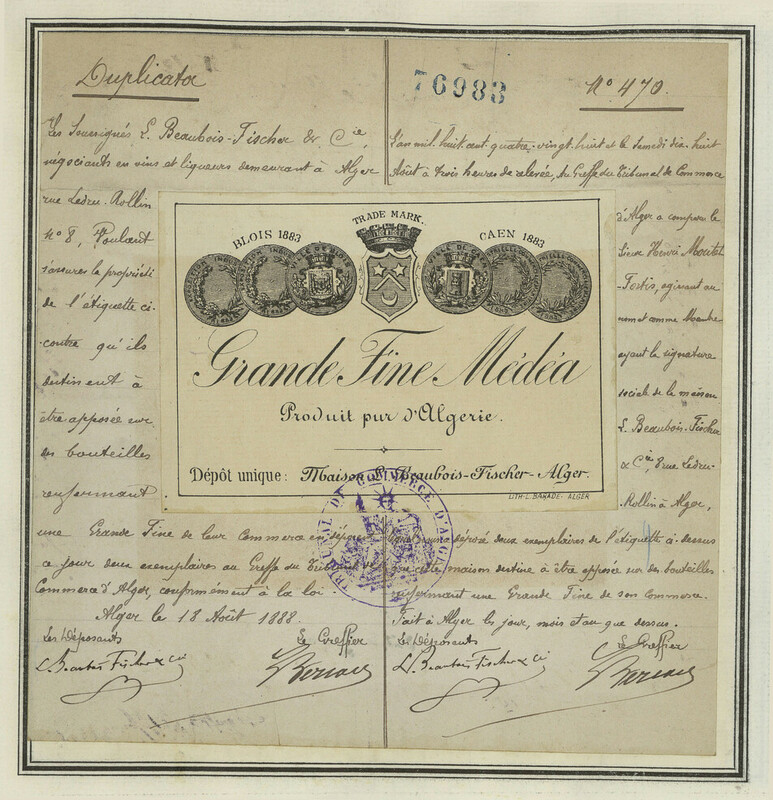 Duplicata
76983
N° 470.
Les Soussignés L. Beaubois-Fischer & Cie,
négociants en vins et liqueurs demeurant à Alger
rue Ledru-Rollin
N° 8, Voulant
s'assurer la propriété
de l'étiquette ci-
contre qu'ils
destinent à
être apposée sur
des bouteilles
renfermant
une Grande Fine de leur Commerce en dépose
ce jour deux exemplaires au Greffe du Tribunal de
Commerce d'Alger, conformément à la loi.
Alger le 18 Août 1888.
Les Déposants
Le Greffier
L. Beaubois Fischer & Cie
L'an mil huit cent quatre-vingt huit et le samedi dix-huit
Août à trois heures de relevée, au Greffe du Tribunal de Commerce
d'Alger a comparu le
Sieur Henri
agissant au
nom et comme Membre
ayant la signature
sociale de la maison
L. Beaubois-Fischer
& Cie, 8 rue Ledru-
Rollin à Alger,
déposé deux exemplaires de l'étiquette ci-dessus
que cette maison destine à être apposée sur des bouteilles
renfermant une Grande Fine de son Commerce.
Fait à Alger les jour, mois et an que dessus.
Les Déposants
Le Greffier
L. Beaubois Fischer & Cie
TRADE MARK.
BLOIS 1883
CAEN 1883
Grande Fine Médéa
Produit pur d'Algerie.
Dépôt unique: Maison L. Beaubois-Fischer-Alger.
LITH-L. BARADE-ALGER
TRIBUNAL DE COMMERCE D'ALGER